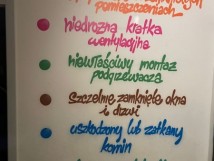 pomieszczeniach:
niedrożna kratka
wentylacyjna
niewłaściwy montaż
podgrzewacza
szczelnie zamknięte okna
i drzwi
uszkodzony lub zatkany
komin